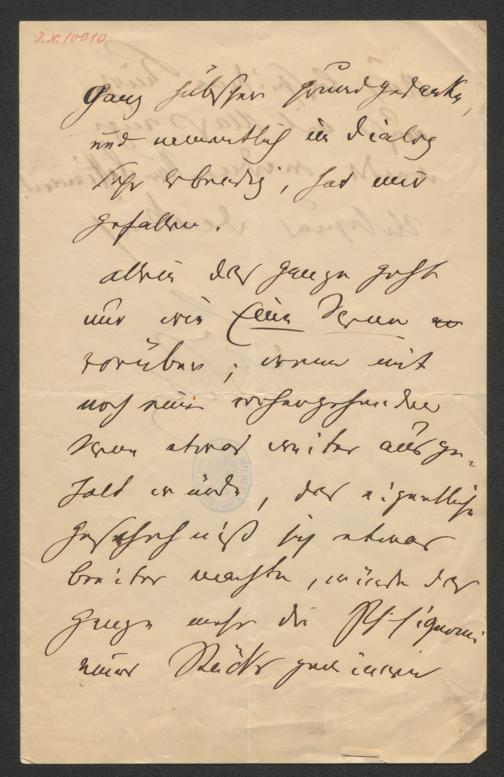 I.N. 10010
Ganz hübscher Grundgedanke,
und namentlich im Dialog
sehr lebendig, hat mir
gefallen.
allein das ganze geht
nur wie eine Scene
vorüber; wenn mit
noch einer vorhergehenden
Scene etwas weiter ausge-
holt würde, das eigentliche
Geschehniß sich etwas
breiter machte, würde das
ganze mehr die Physiognomie
eines Stücks gewinnen